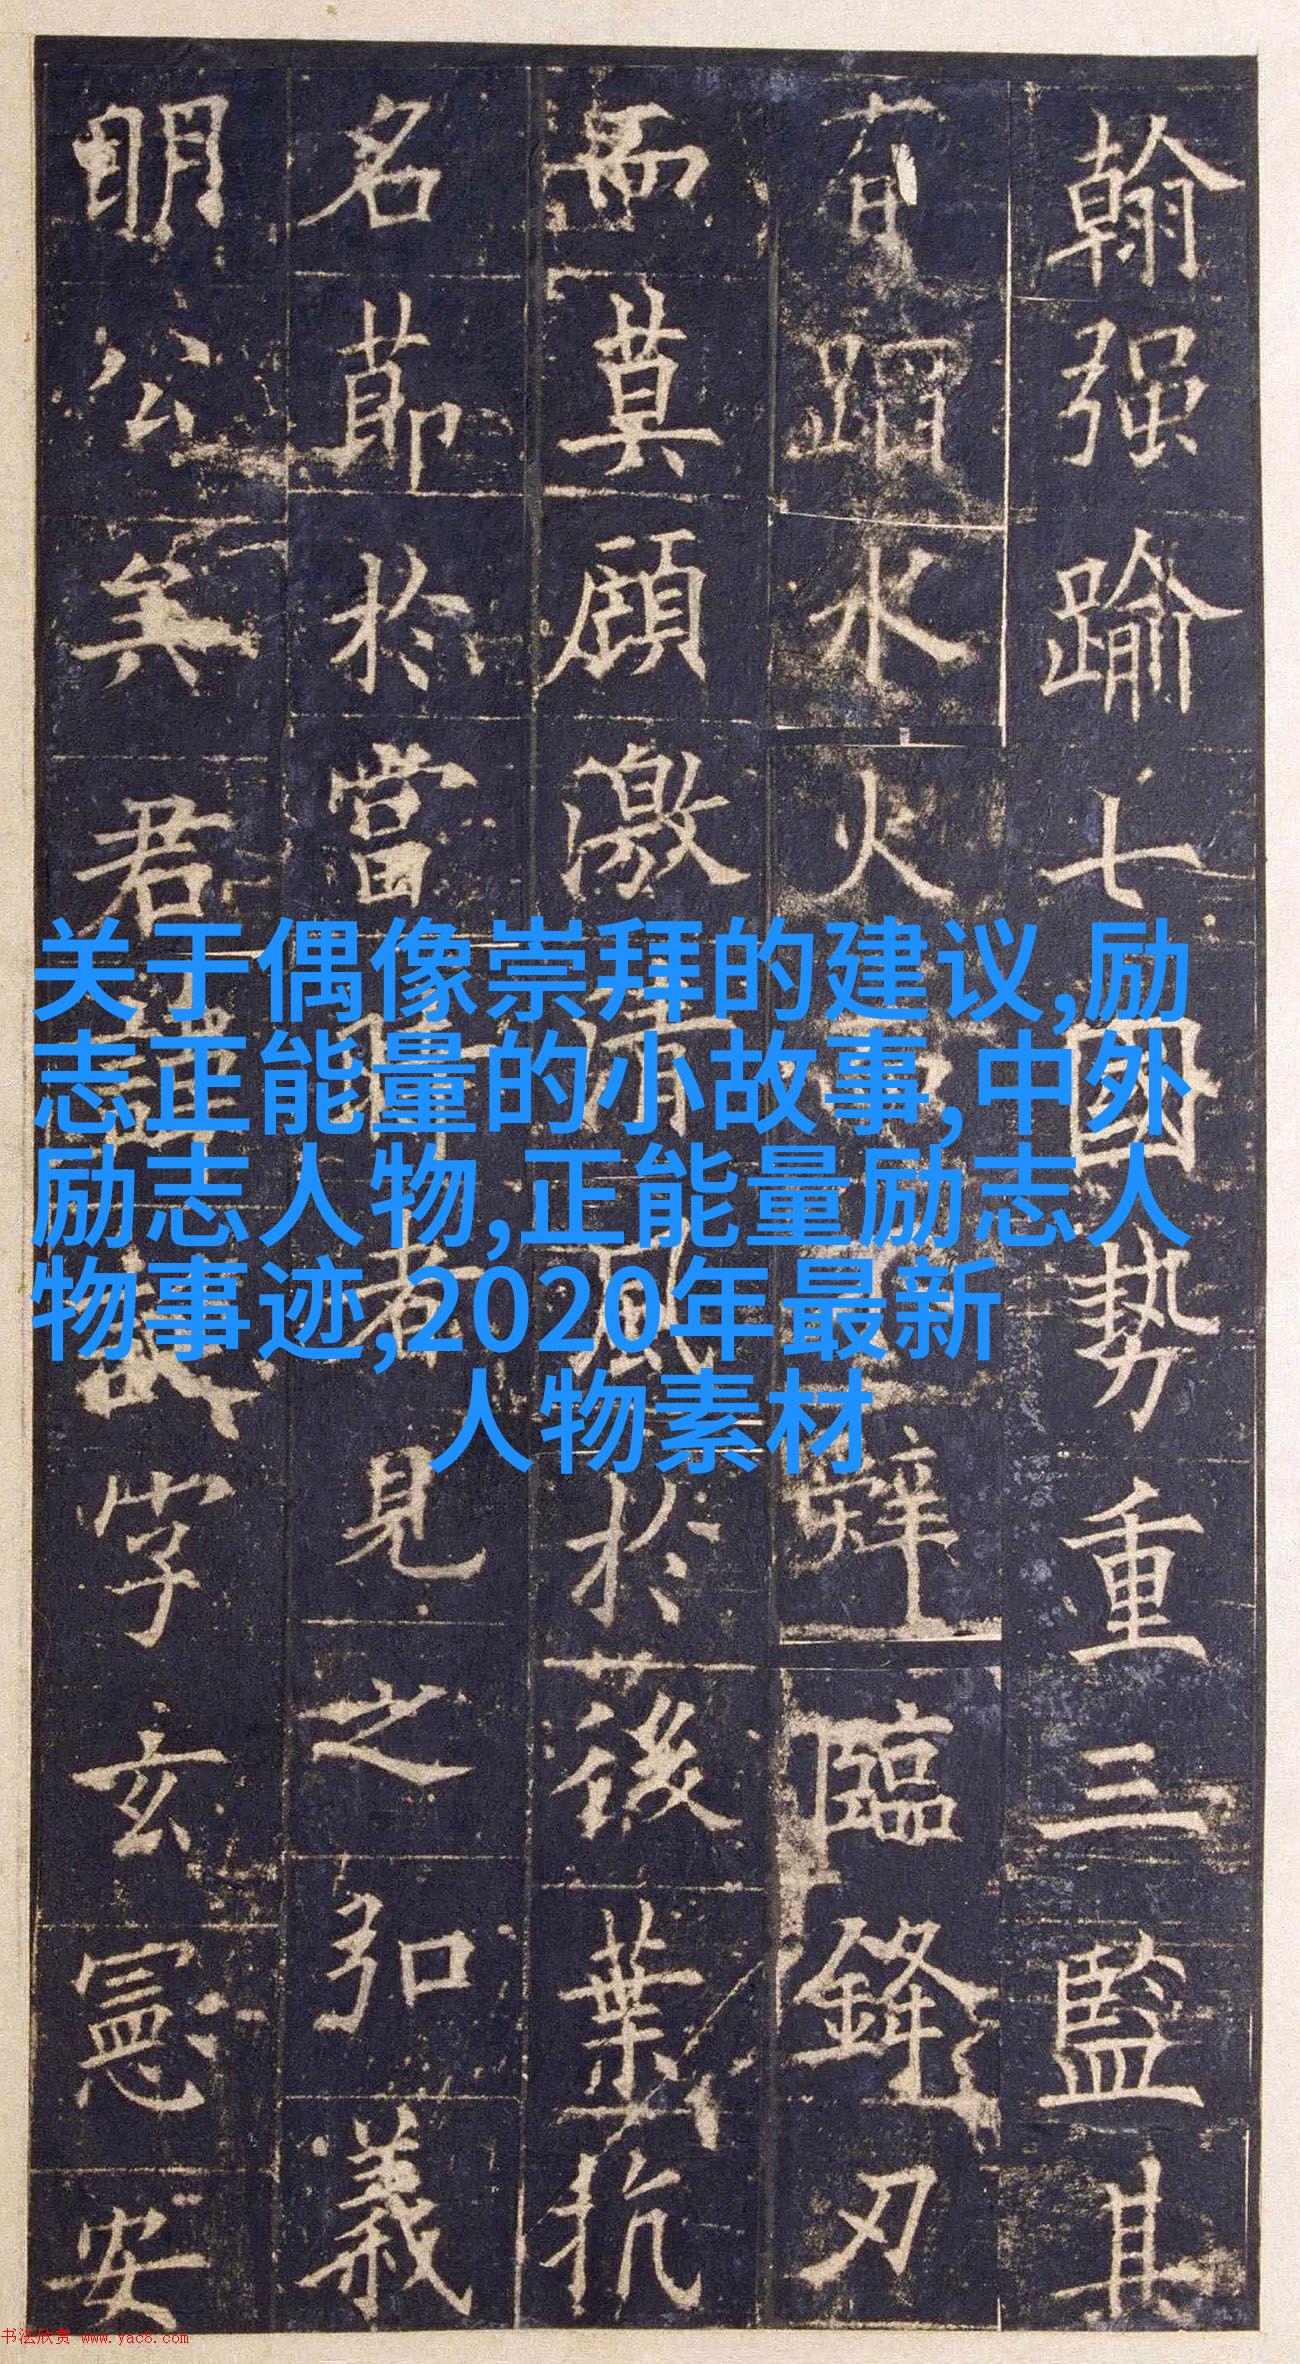 翰强踰七國势重三監其
有蹈水火而辞臨鋒刃
而莫顧激清風於後葉抗
名節於當時者見之弘義
明公矣君諱誕字玄憲安
关于偶像崇拜的建议,励
志正能量的小故事,中外
励志人物,正能量励志人
物事迹,2020年最新
人物素材
书法欣赏 www.yac8.com